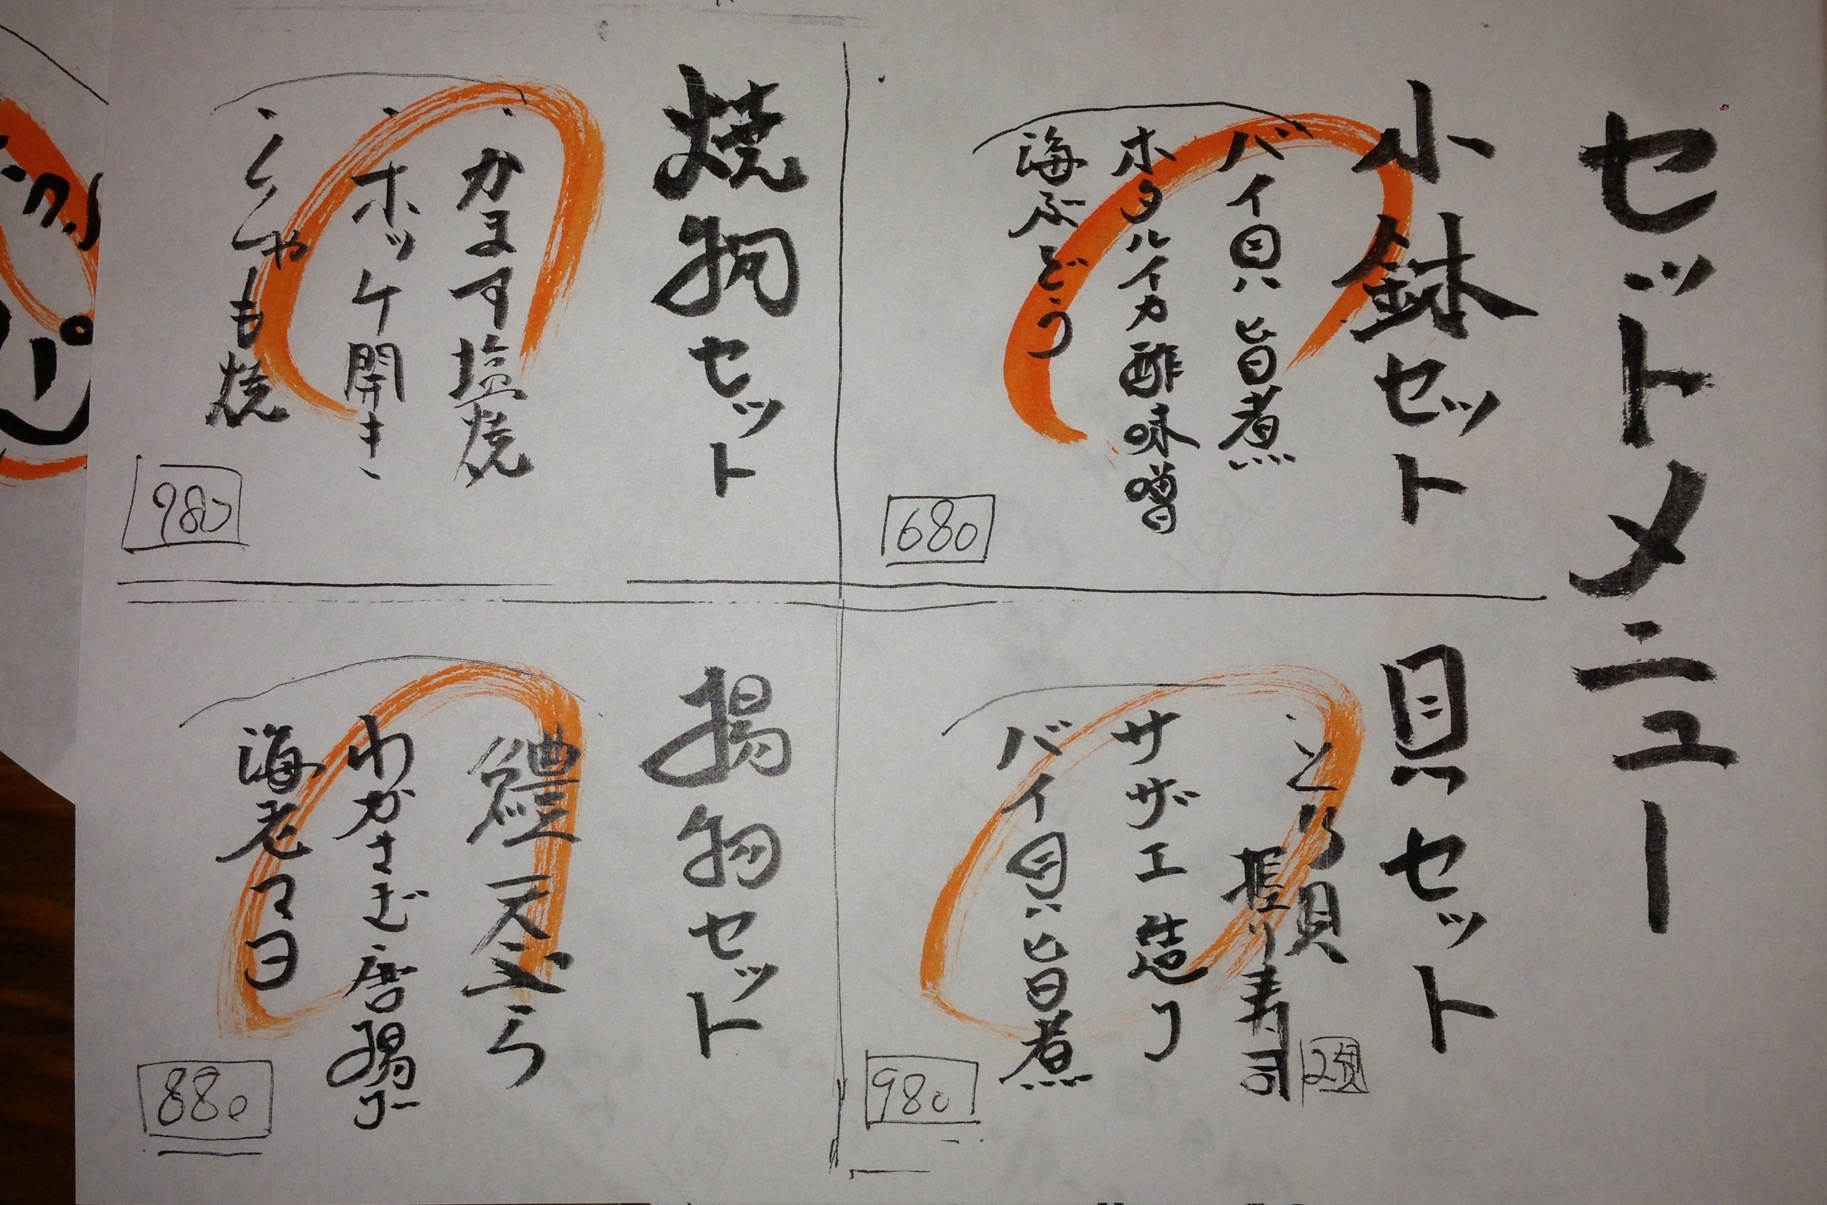 セットメニュー
小鉢セット
バイ貝旨煮
ホタルイカ酢味噌
海ぶどう
680
貝セット
とり貝
握り寿司
2貫
サザエ造り
バイ貝旨煮
980
焼物セット
・かます塩焼
・ホッケ開き
・ししゃも焼
980
揚物セット
鱧天ぷら
わかさぎ唐揚げ
海老マヨ
880